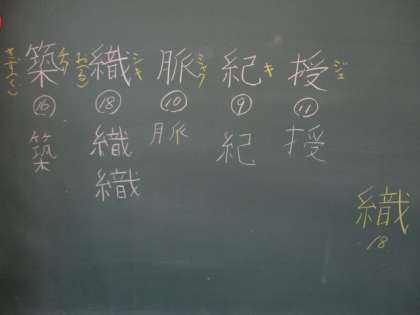 授 ジュ
⑪
授
紀 キ
⑨
紀
脈 ミャク
⑩
脈
織 シキ
おる
⑱
織
織
築 チク
きずく
⑯
築
織
18